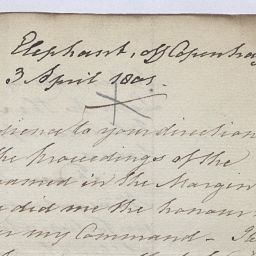 Elephant, off Copenha
3 April 1801.
dience to your direction
the Proceedings of the
named in the Margin
e did me the honour
er my Command -